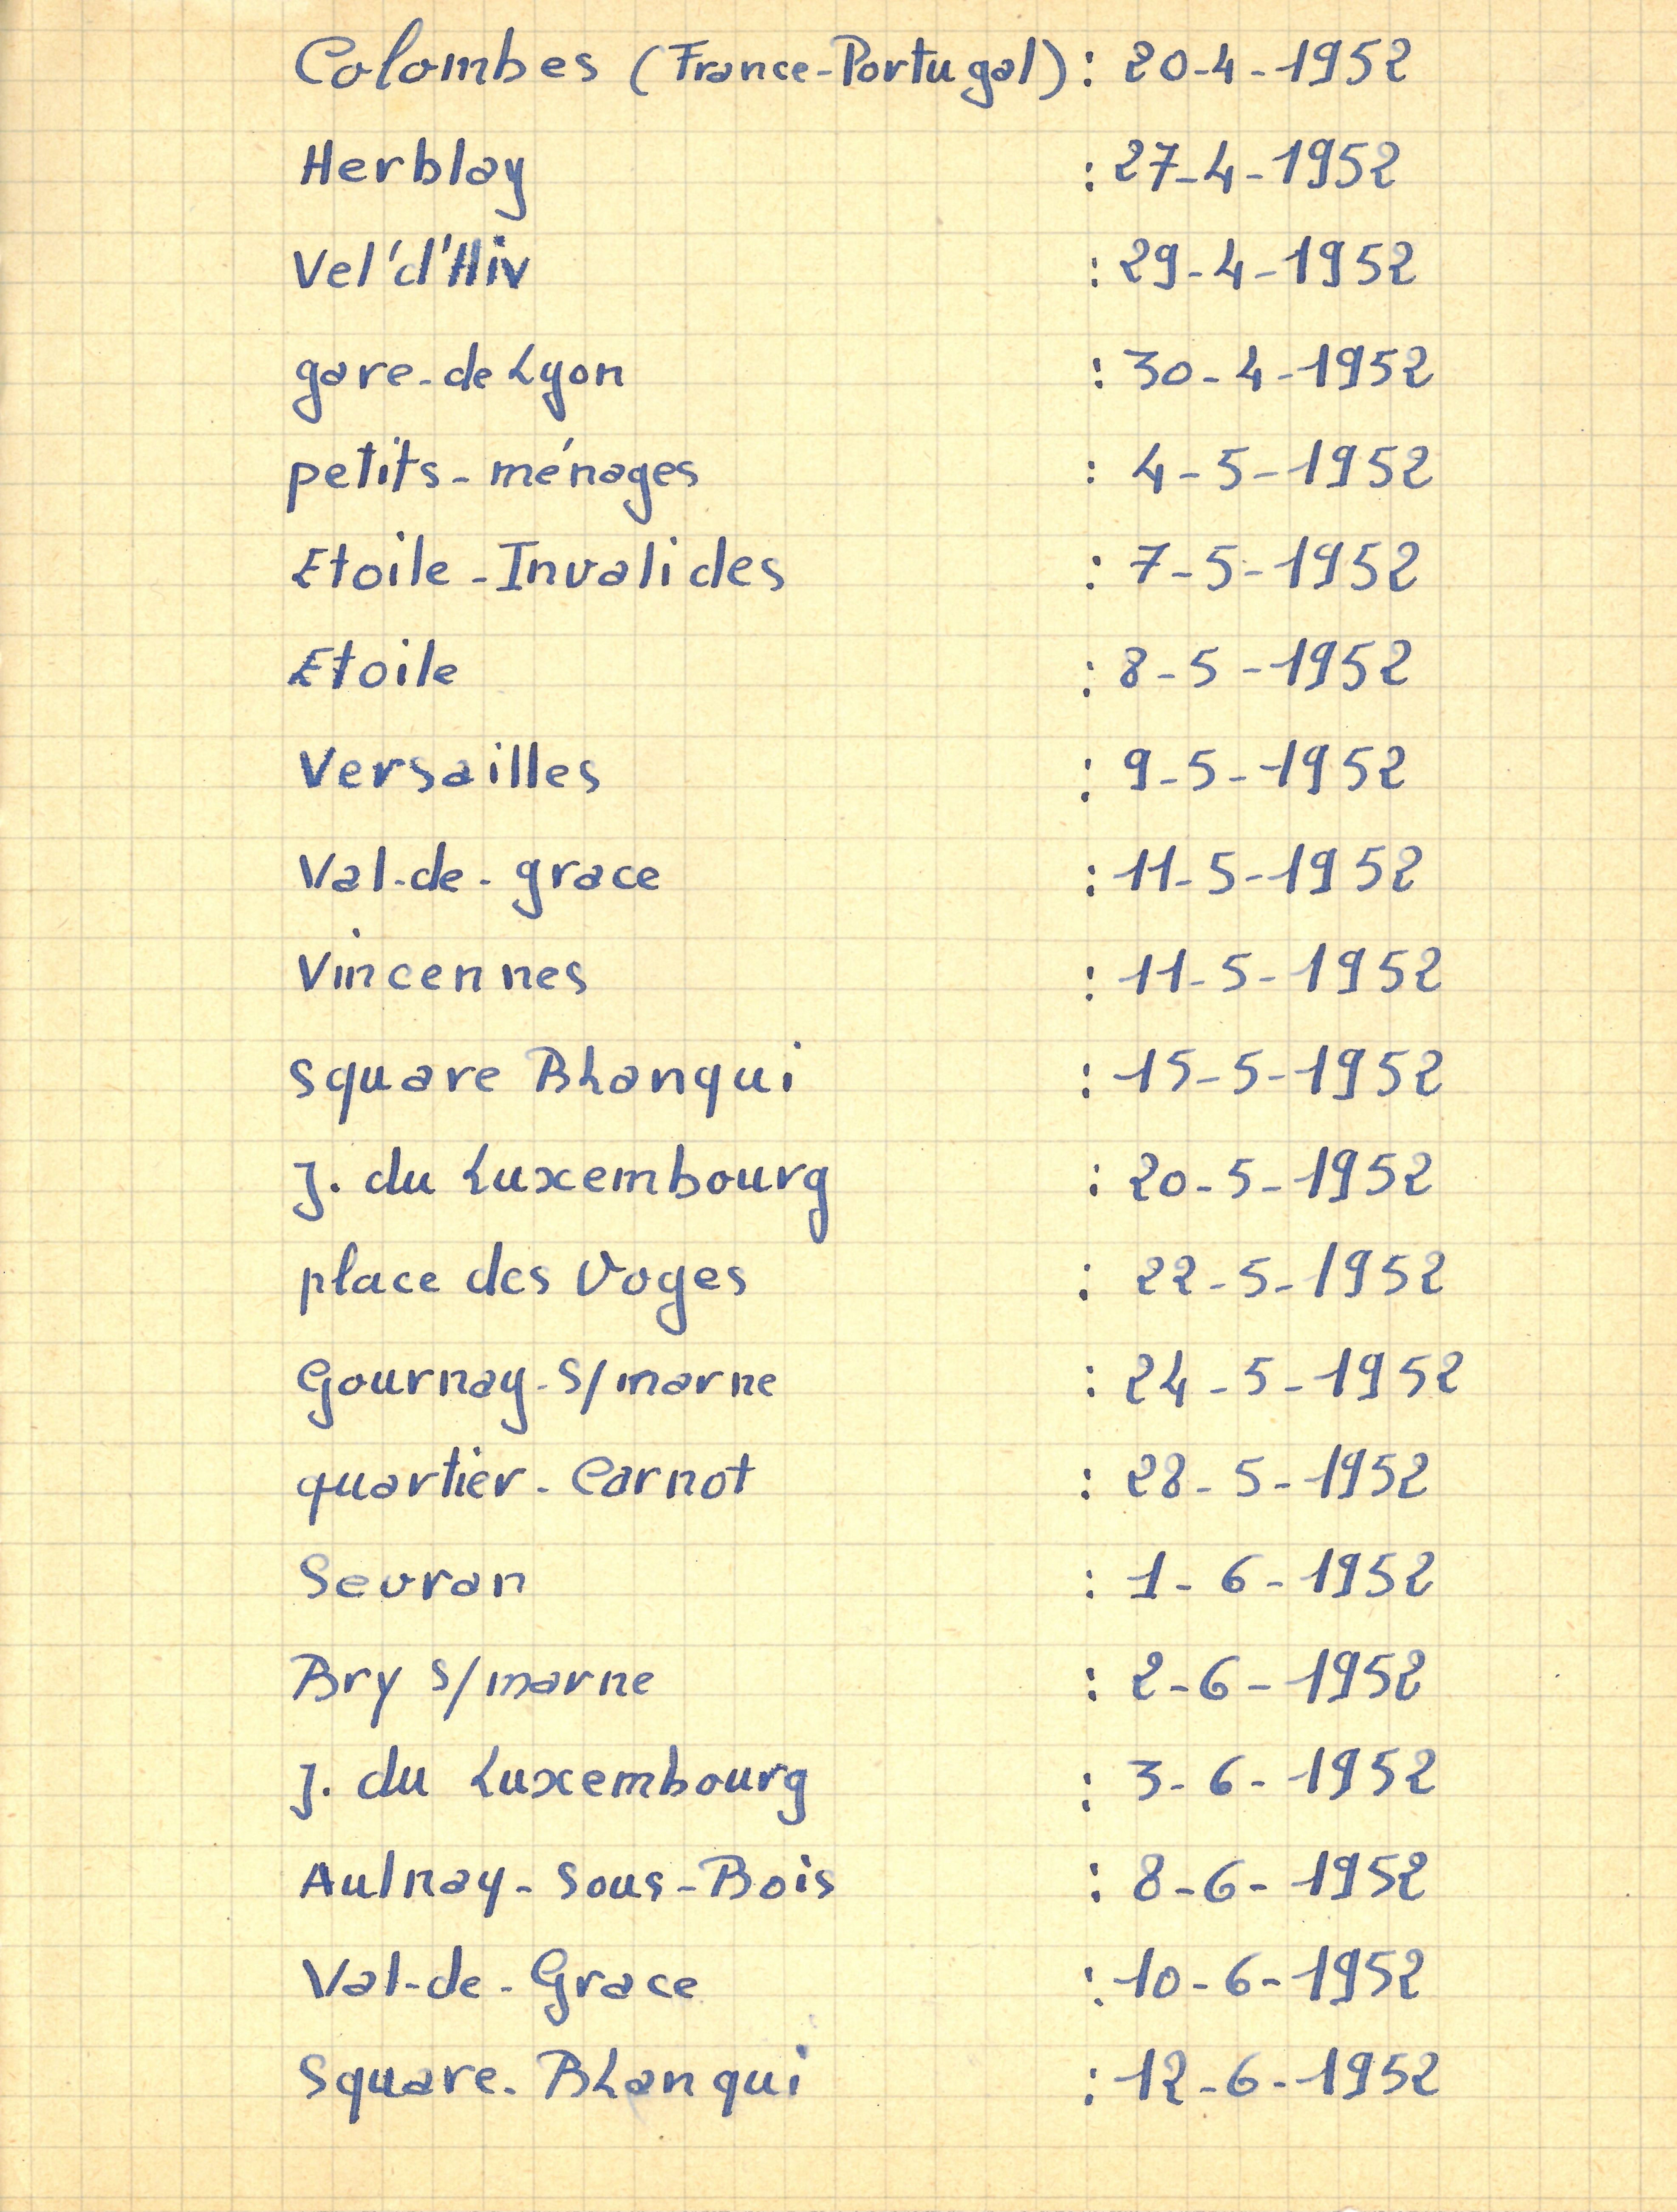 Colombes (France-Portugal) : 20-4-1952
Herblay : 27-4-1952
Vel'd'Hiv : 29-4-1952
gare-de Lyon : 30-4-1952
petits-ménages : 4-5-1952
Etoile-Invalides : 7-5-1952
Etoile : 8-5-1952
Versailles : 9-5-1952
Val-de-grace : 11-5-1952
Vincennes : 11-5-1952
square BLanqui : 15-5-1952
J. du Luxembourg : 20-5-1952
place des Voges : 22-5-1952
Gournay-S/marne : 24-5-1952
quartier-Carnot : 28-5-1952
Sevran : 1-6-1952
Bry s/marne : 2-6-1952
J. du Luxembourg : 3-6-1952
Aulnay-sous-Bois : 8-6-1952
Val-de-Grace : 10-6-1952
Square-BLanqui : 12-6-1952